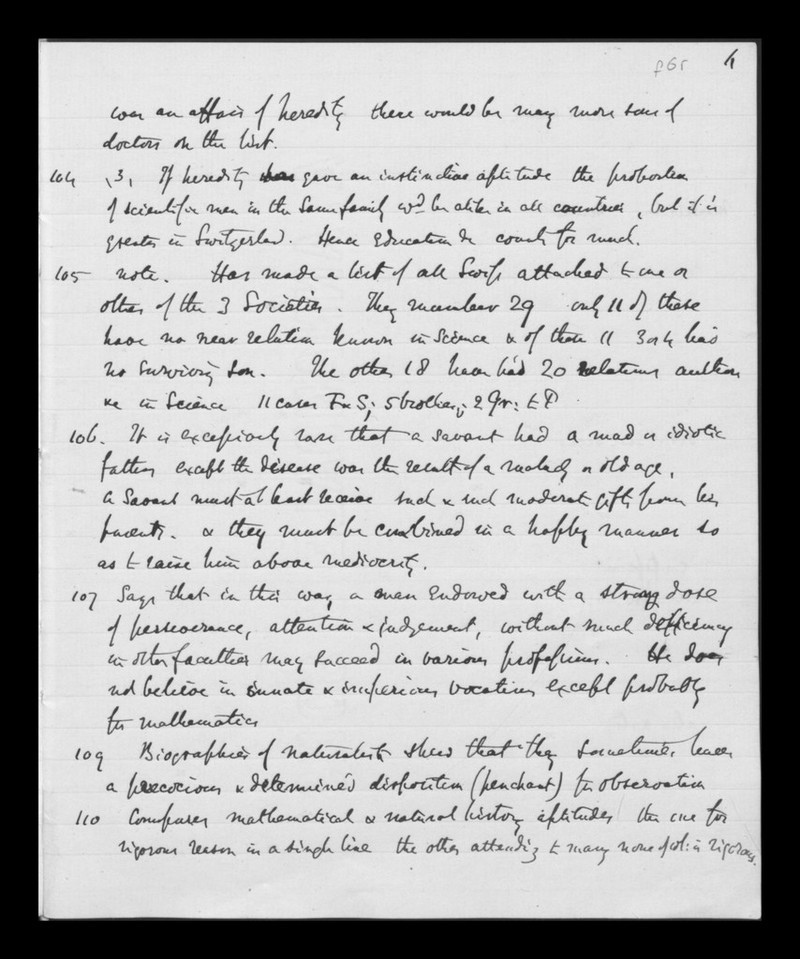 f6r 4
was an affair of heredity there would be many more sons of
doctors on the list.
104 (3) If heredity gave an instinctive aptitude the proportion
of scientific men in the same family wd be alike in all countries, but it is
greater in Switzerland. Hence Education &c counts for much.
105 note. Has made a list of all Swiss attached to one or
other of the 3 Societies. They number 29 only 11 of these
have no near relation known in science & of them 11 3 or 4 has
no surviving son. The other 18 have had 20 relations
in Science 11 cases F & S; 5 brothers; 2 Gr:
106. It is excessively rare that a savant had a mad or idiotic
father except the disease was the result of a malady or old age.
A Savant must at least receive such & such moderate gifts from his
parents. & they must be combined in a happy manner so
as to raise him above mediocrity.
107 Says that in this way a man endowed with a strong dose
of perseverance, attention & judgement, without much deficiency
in other faculties may succeed in various professions. He does
not believe in innate & imperious vocations except probably
for mathematics
109 Biographies of naturalists shew that they sometimes have
a precocious & determined disposition (penchant) for observation
110 Compares mathematical & natural history aptitudes the one for
rigorous reason in a single line the other attending to many none of wh: is rigorous.